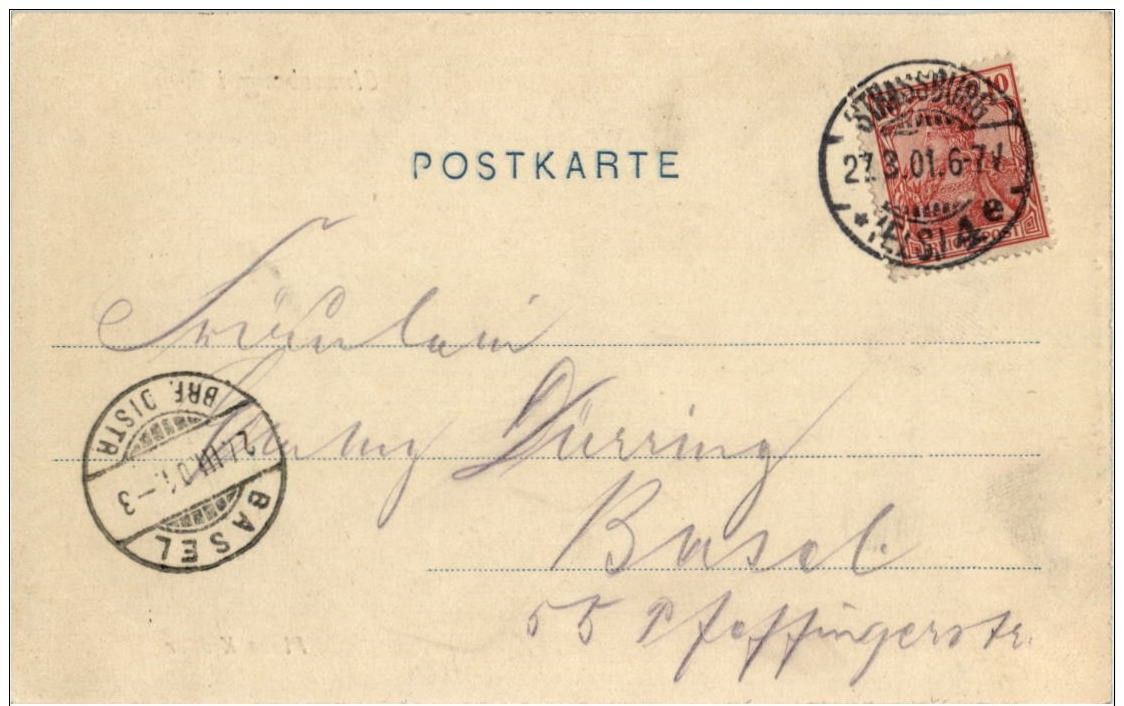 POSTKARTE
10
STRASSBURG
27.3.01.6-7V
* (ELS) 1 e
REICHSPOST
Fräulein
Fanny Dürring
Basel
55 Pfeffingerstr.
BRF. DISTR.
27.III.01.-3
BASEL